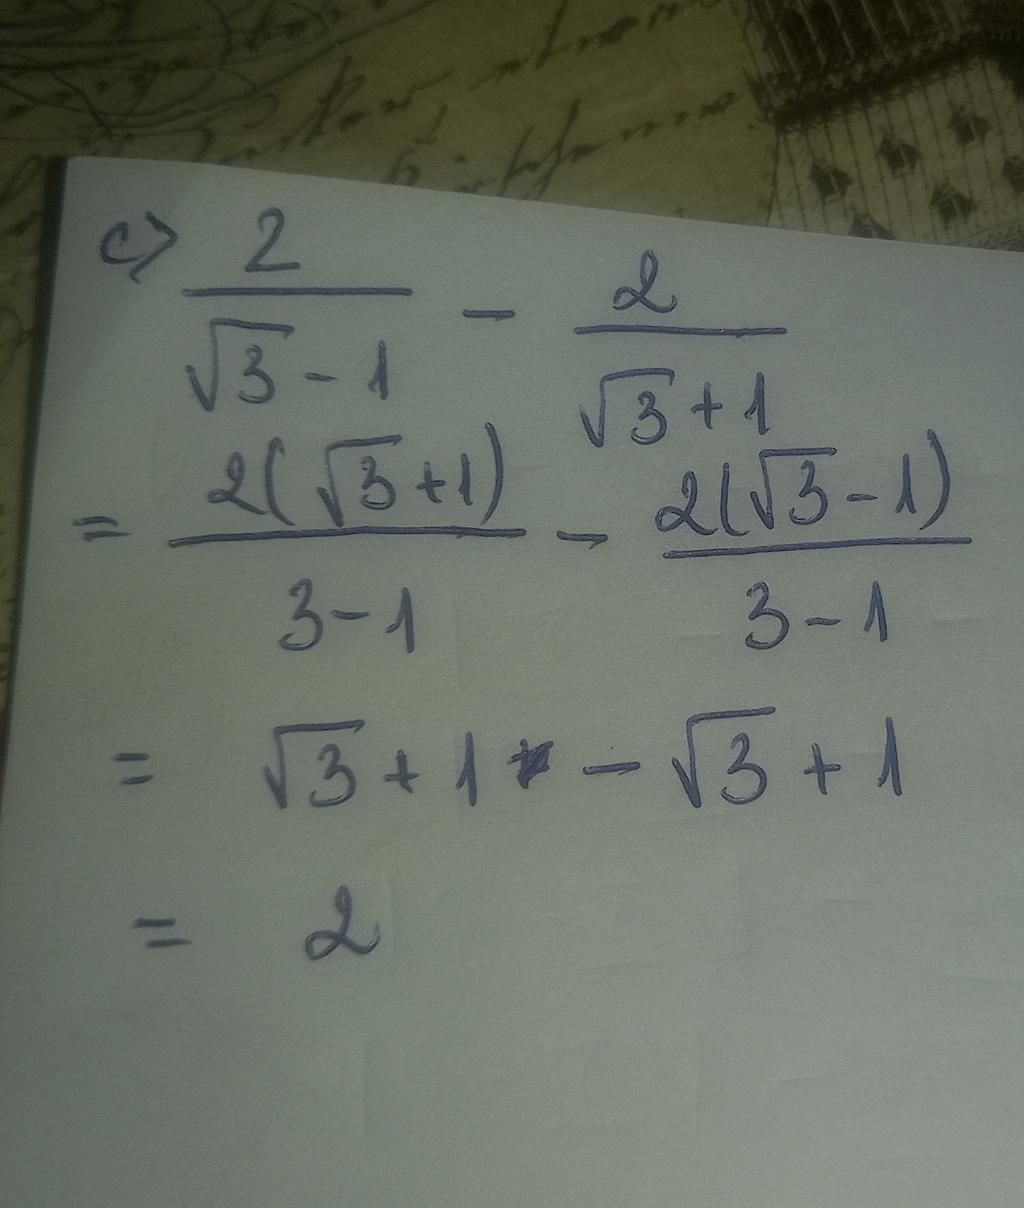 c) 2/(√3 - 1) - 2/(√3 + 1)
= 2(√3 + 1)/(3 - 1) - 2(√3 - 1)/(3 - 1)
= √3 + 1 - √3 + 1
= 2